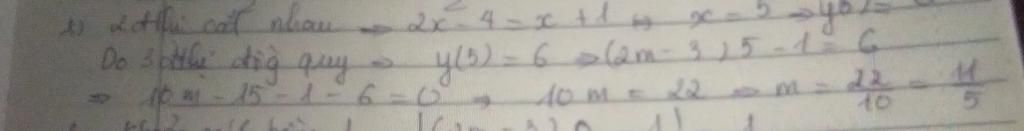 2 đthị cắt nhau → 2x - 4 = x + 1 ↔ x = 5 → y
Do 3 đthị đg quy → y(5) = 6 → (2m - 3) 5 - 1 = 6
→ 10m - 15 - 1 - 6 = 0 → 10m = 22 → m = 22/10 = 11/5